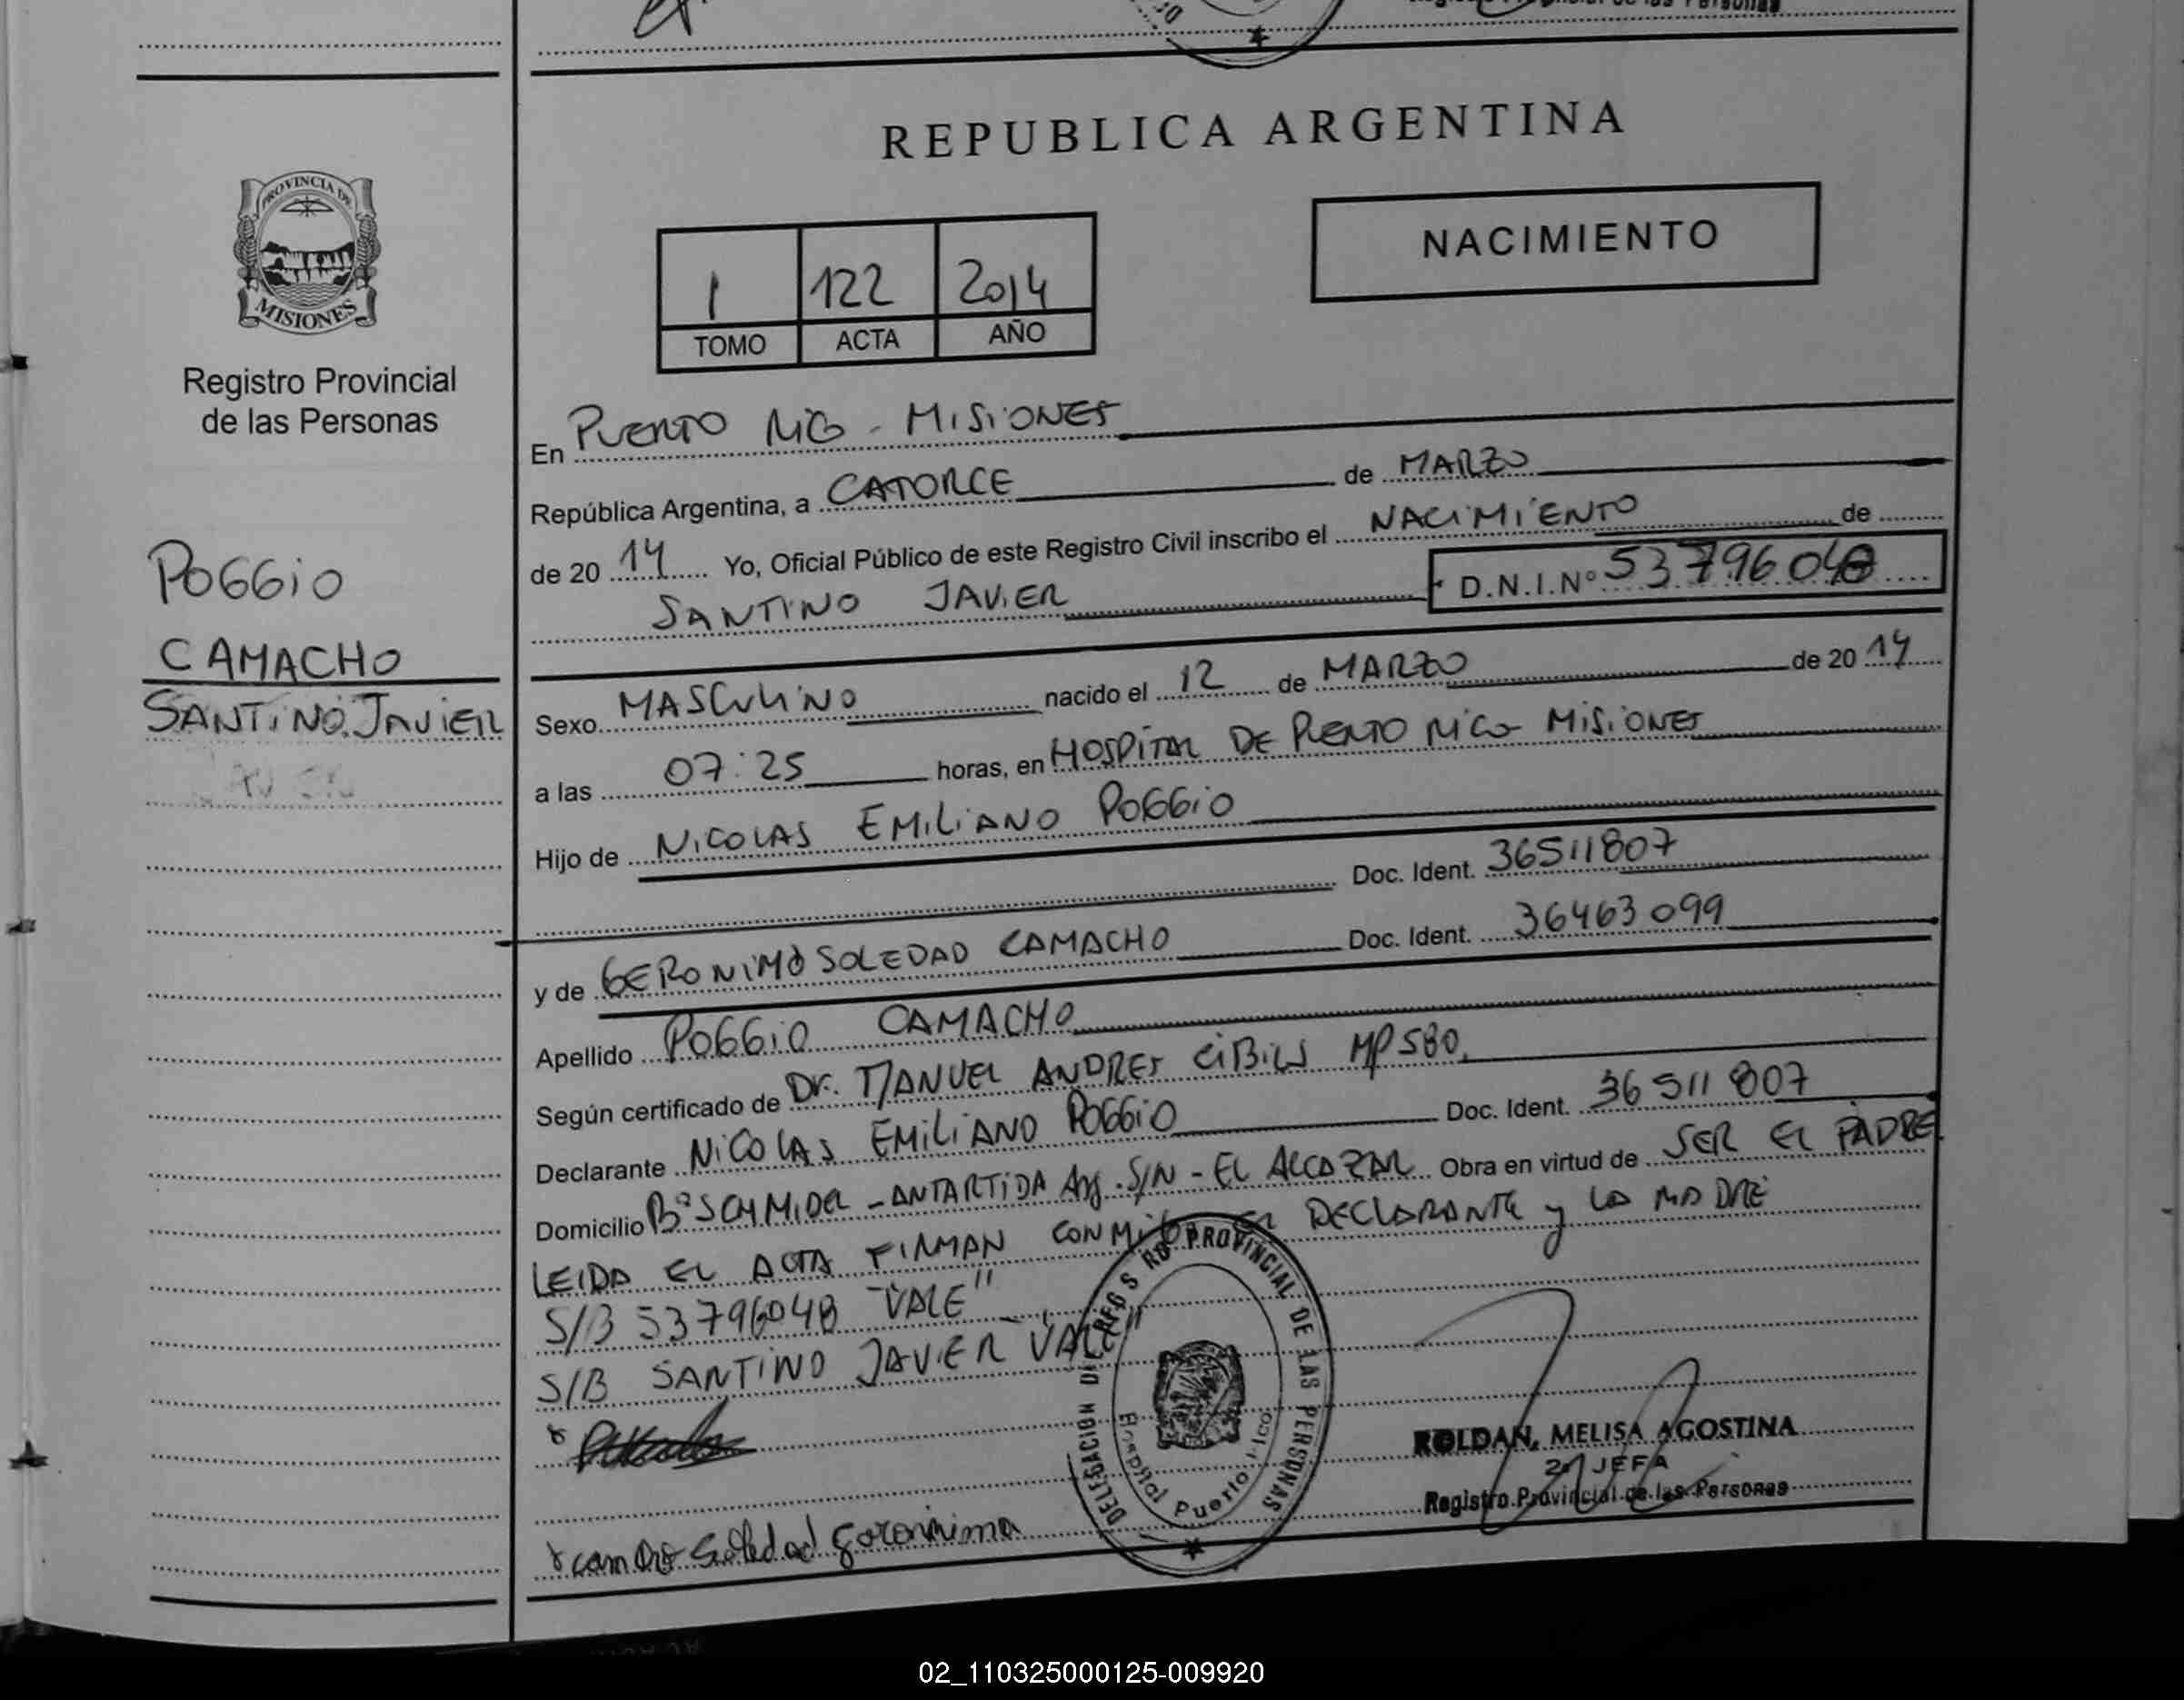 PROVINCIA DE
MISIONES
Registro Provincial
de las Personas
POGGIO
CAMACHO
SANTINO JAVIER
REPUBLICA ARGENTINA
1 122 2014
TOMO ACTA AÑO
NACIMIENTO
En PUERTO RICO - MISIONES
República Argentina, a CATORCE de MARZO
de 20 14 Yo, Oficial Público de este Registro Civil inscribo el NACIMIENTO de
SANTINO JAVIER D.N.I.Nº 53796048
Sexo MASCULINO nacido el 12 de MARZO de 20 14
a las 07:25 horas, en HOSPITAL DE PUERTO RICO MISIONES
Hijo de NICOLAS EMILIANO POGGIO
Doc. Ident. 36511807
y de GERONIMO SOLEDAD CAMACHO Doc. Ident. 36463099
Apellido POGGIO CAMACHO
Según certificado de Dr. MANUEL ANDRES CIBILS MP 580
Declarante NICOLAS EMILIANO POGGIO Doc. Ident. 36511807
Domicilio Bº SCHMIDEL - ANTARTIDA Arg. S/N - EL ALCAZAR Obra en virtud de SER EL PADRE
LEIDA EL ACTA FIRMAN CONMIGO EL DECLARANTE y LA MADRE
S/B 53796048 "VALE"
S/B SANTINO JAVIER "VALE"
DELEGACION DEL REGISTRO PROVINCIAL DE LAS PERSONAS
Hospital Puerto Rico
ROLDAN, MELISA AGOSTINA
2º JEFA
Registro Provincial de las Personas
Soledad
02_110325000125-009920